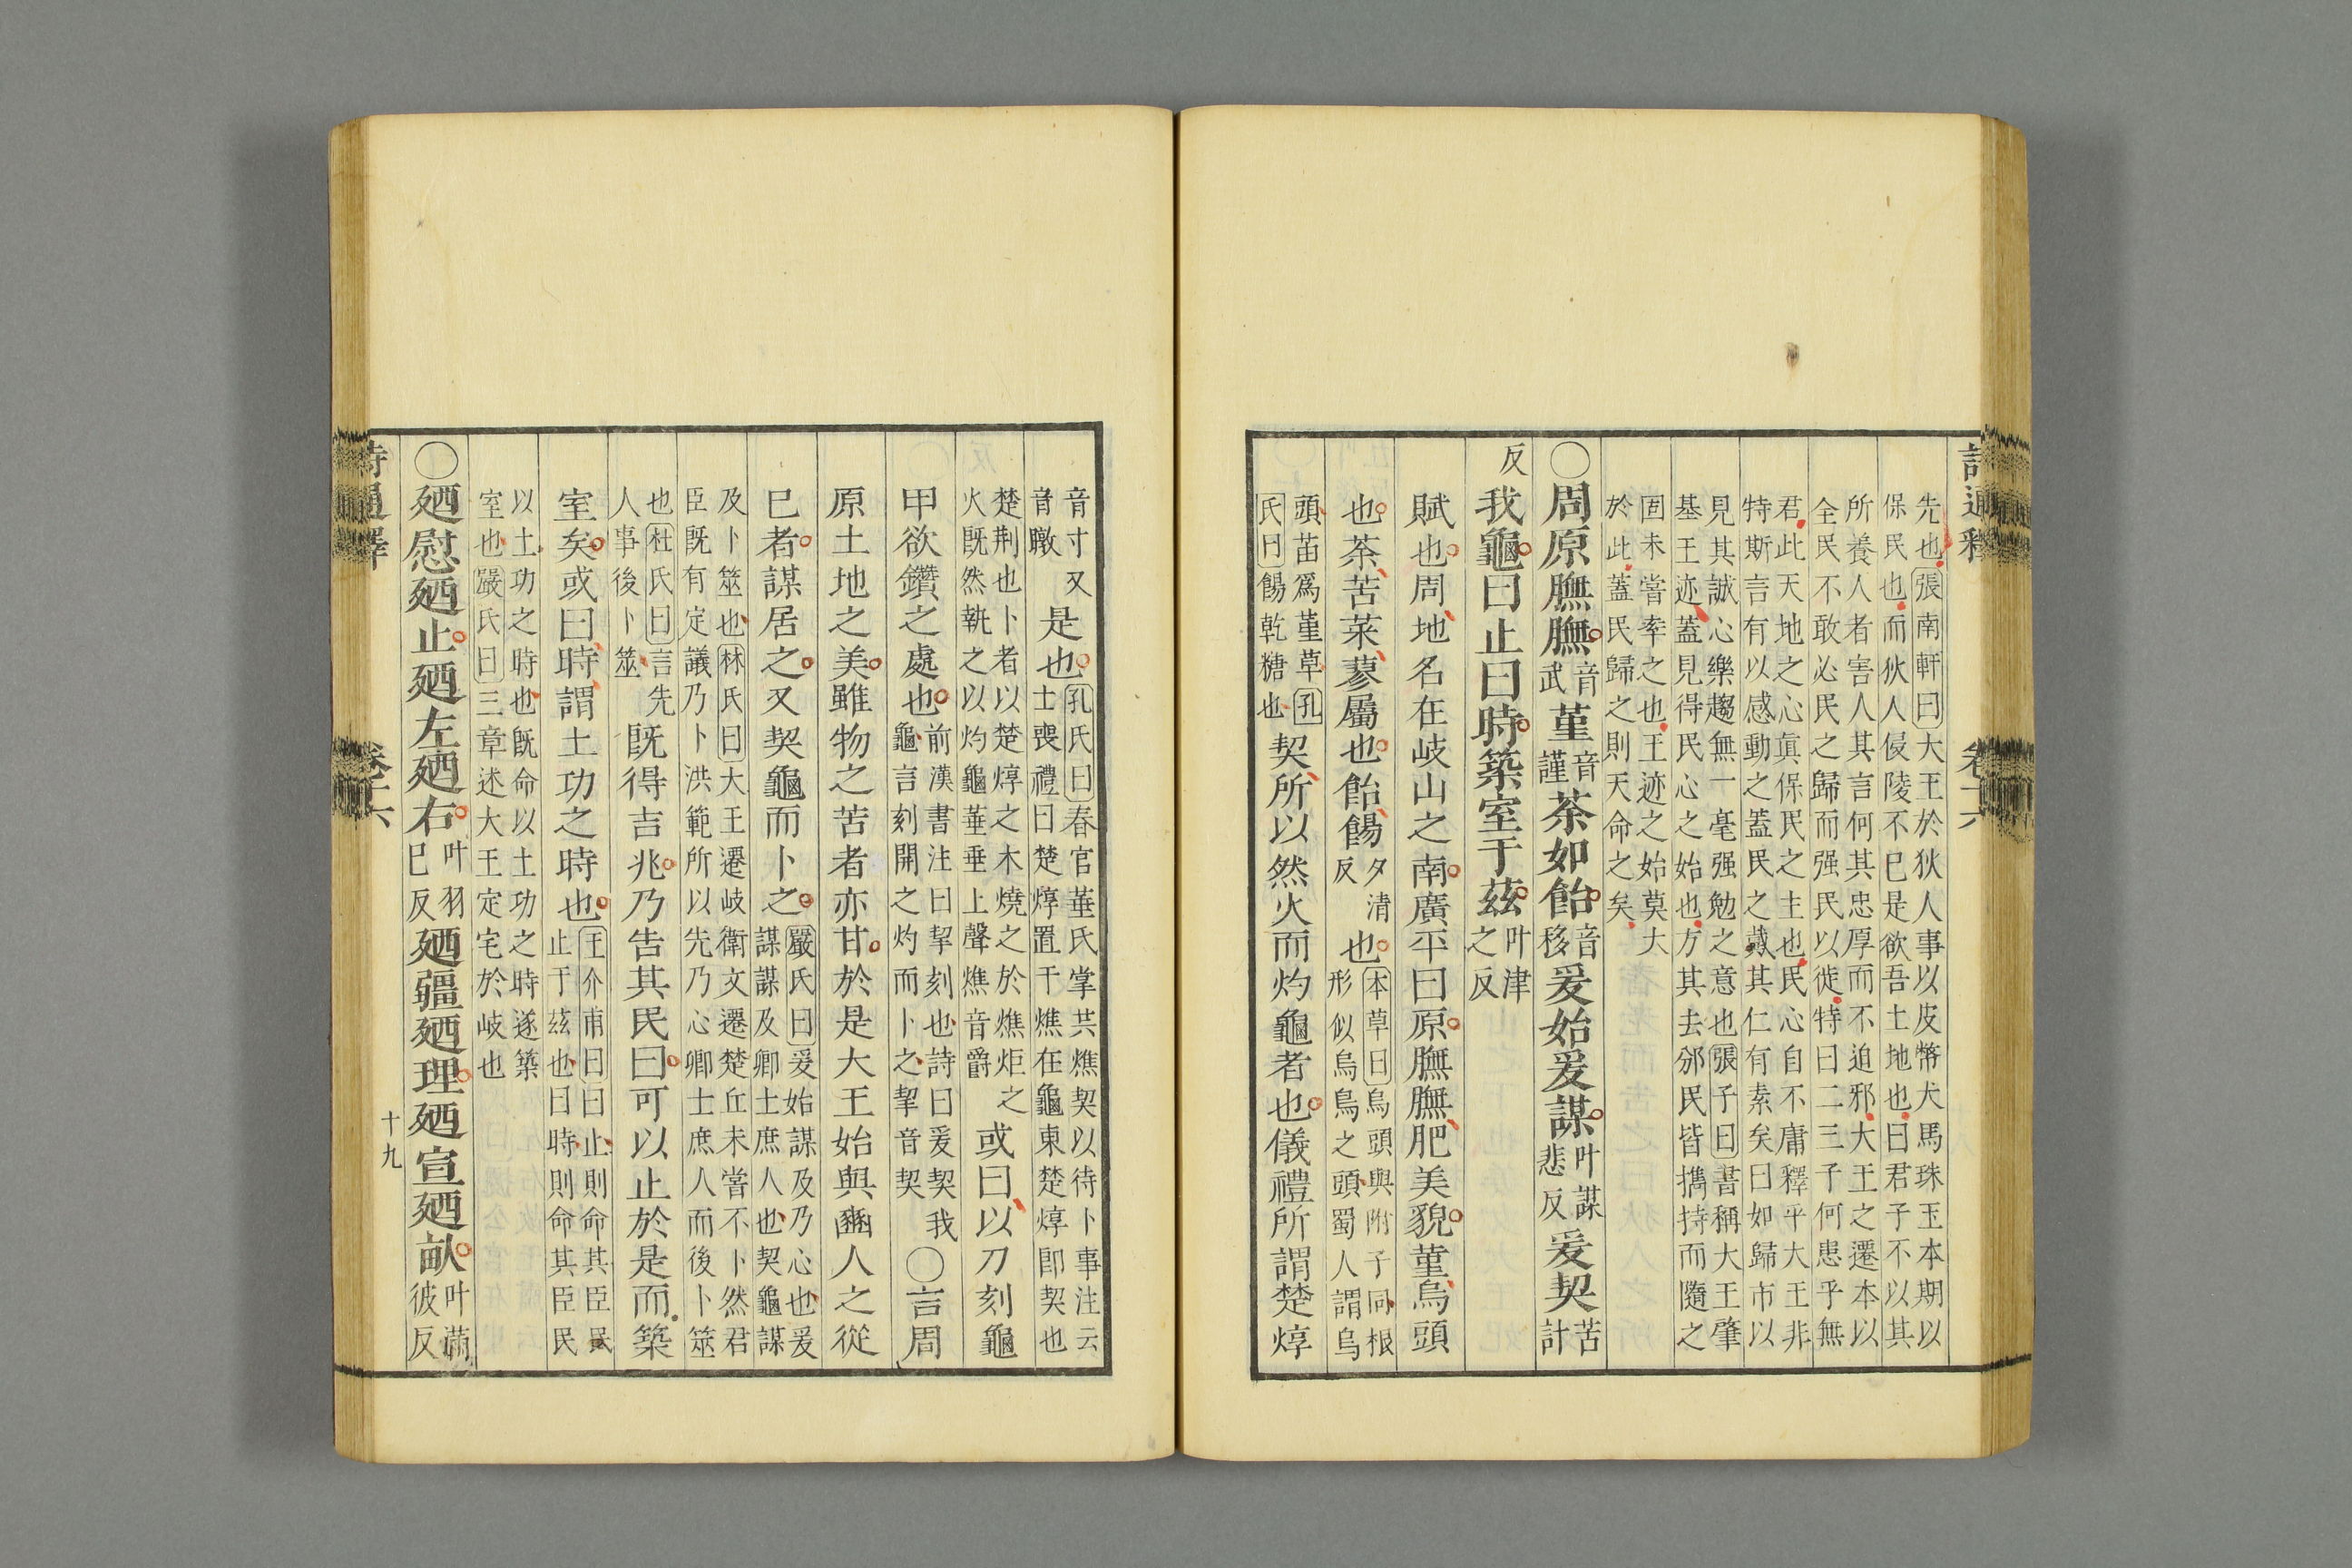 先也張南軒曰大王於狄人事以皮幣犬馬珠玉本期以
保民也而狄人侵陵不已是欲吾土地也曰君子不以其
所養人者害人其言何其忠厚而不迫邪大王之遷本以
全民不敢必民之歸而强民以從特曰二三子何患乎無
君此天地之心眞保民之主也民心自不庸釋乎大王非
特斯言有以感動之蓋民之戴其仁有素矣曰如歸市以
見其誠心樂趨無一毫强勉之意也張子曰書稱大王肇
基王迹蓋見得民心之始也方其去邠民皆攜持而隨之
固未嘗牽之也王迹之始莫大
於此蓋民歸之則天命之矣
〇周原膴膴音武堇音謹荼如飴音移爰始爰謀叶謀悲反爰契苦計
反我龜曰止曰時築室于茲叶津之反
賦也周地名在岐山之南廣平曰原膴膴肥美貌堇烏頭
也荼苦菜蓼屬也飴餳夕清反也本草曰烏頭與附子同根形似烏鳥之頭蜀人謂烏
頭苗爲堇草孔氏曰餳乾糖也契所以然火而灼龜者也儀禮所謂楚焞
音寸又音暾是也孔氏曰春官菙氏掌共燋契以待卜事注云士喪禮曰楚焞置于燋在龜東楚焞卽契也
楚荆也卜者以楚焞之木燒之於燋炬之火既然執之以灼龜菙垂上聲燋音爵或曰以刀刻龜
甲欲鑽之處也前漢書注曰挈刻也詩曰爰契我龜言刻開之灼而卜之挈音契〇言周
原土地之美雖物之苦者亦甘於是大王始與豳人之從
已者謀居之又契龜而卜之嚴氏曰爰始謀及乃心也爰謀謀及卿士庶人也契龜謀
及卜筮也林氏曰大王遷岐衛文遷楚丘未嘗不卜然君
臣既有定議乃卜洪範所以先乃心卿士庶人而後卜筮
也杜氏曰言先人事後卜筮既得吉兆乃告其民曰可以止於是而築
室矣或曰時謂土功之時也王介甫曰曰止則命其臣民止于茲也曰時則命其臣民
以土功之時也既命以土功之時遂築
室也嚴氏曰三章述大王定宅於岐也
〇廼慰廼止廼左廼右叶羽已反廼疆廼理廼宣廼畝叶滿彼反
十九